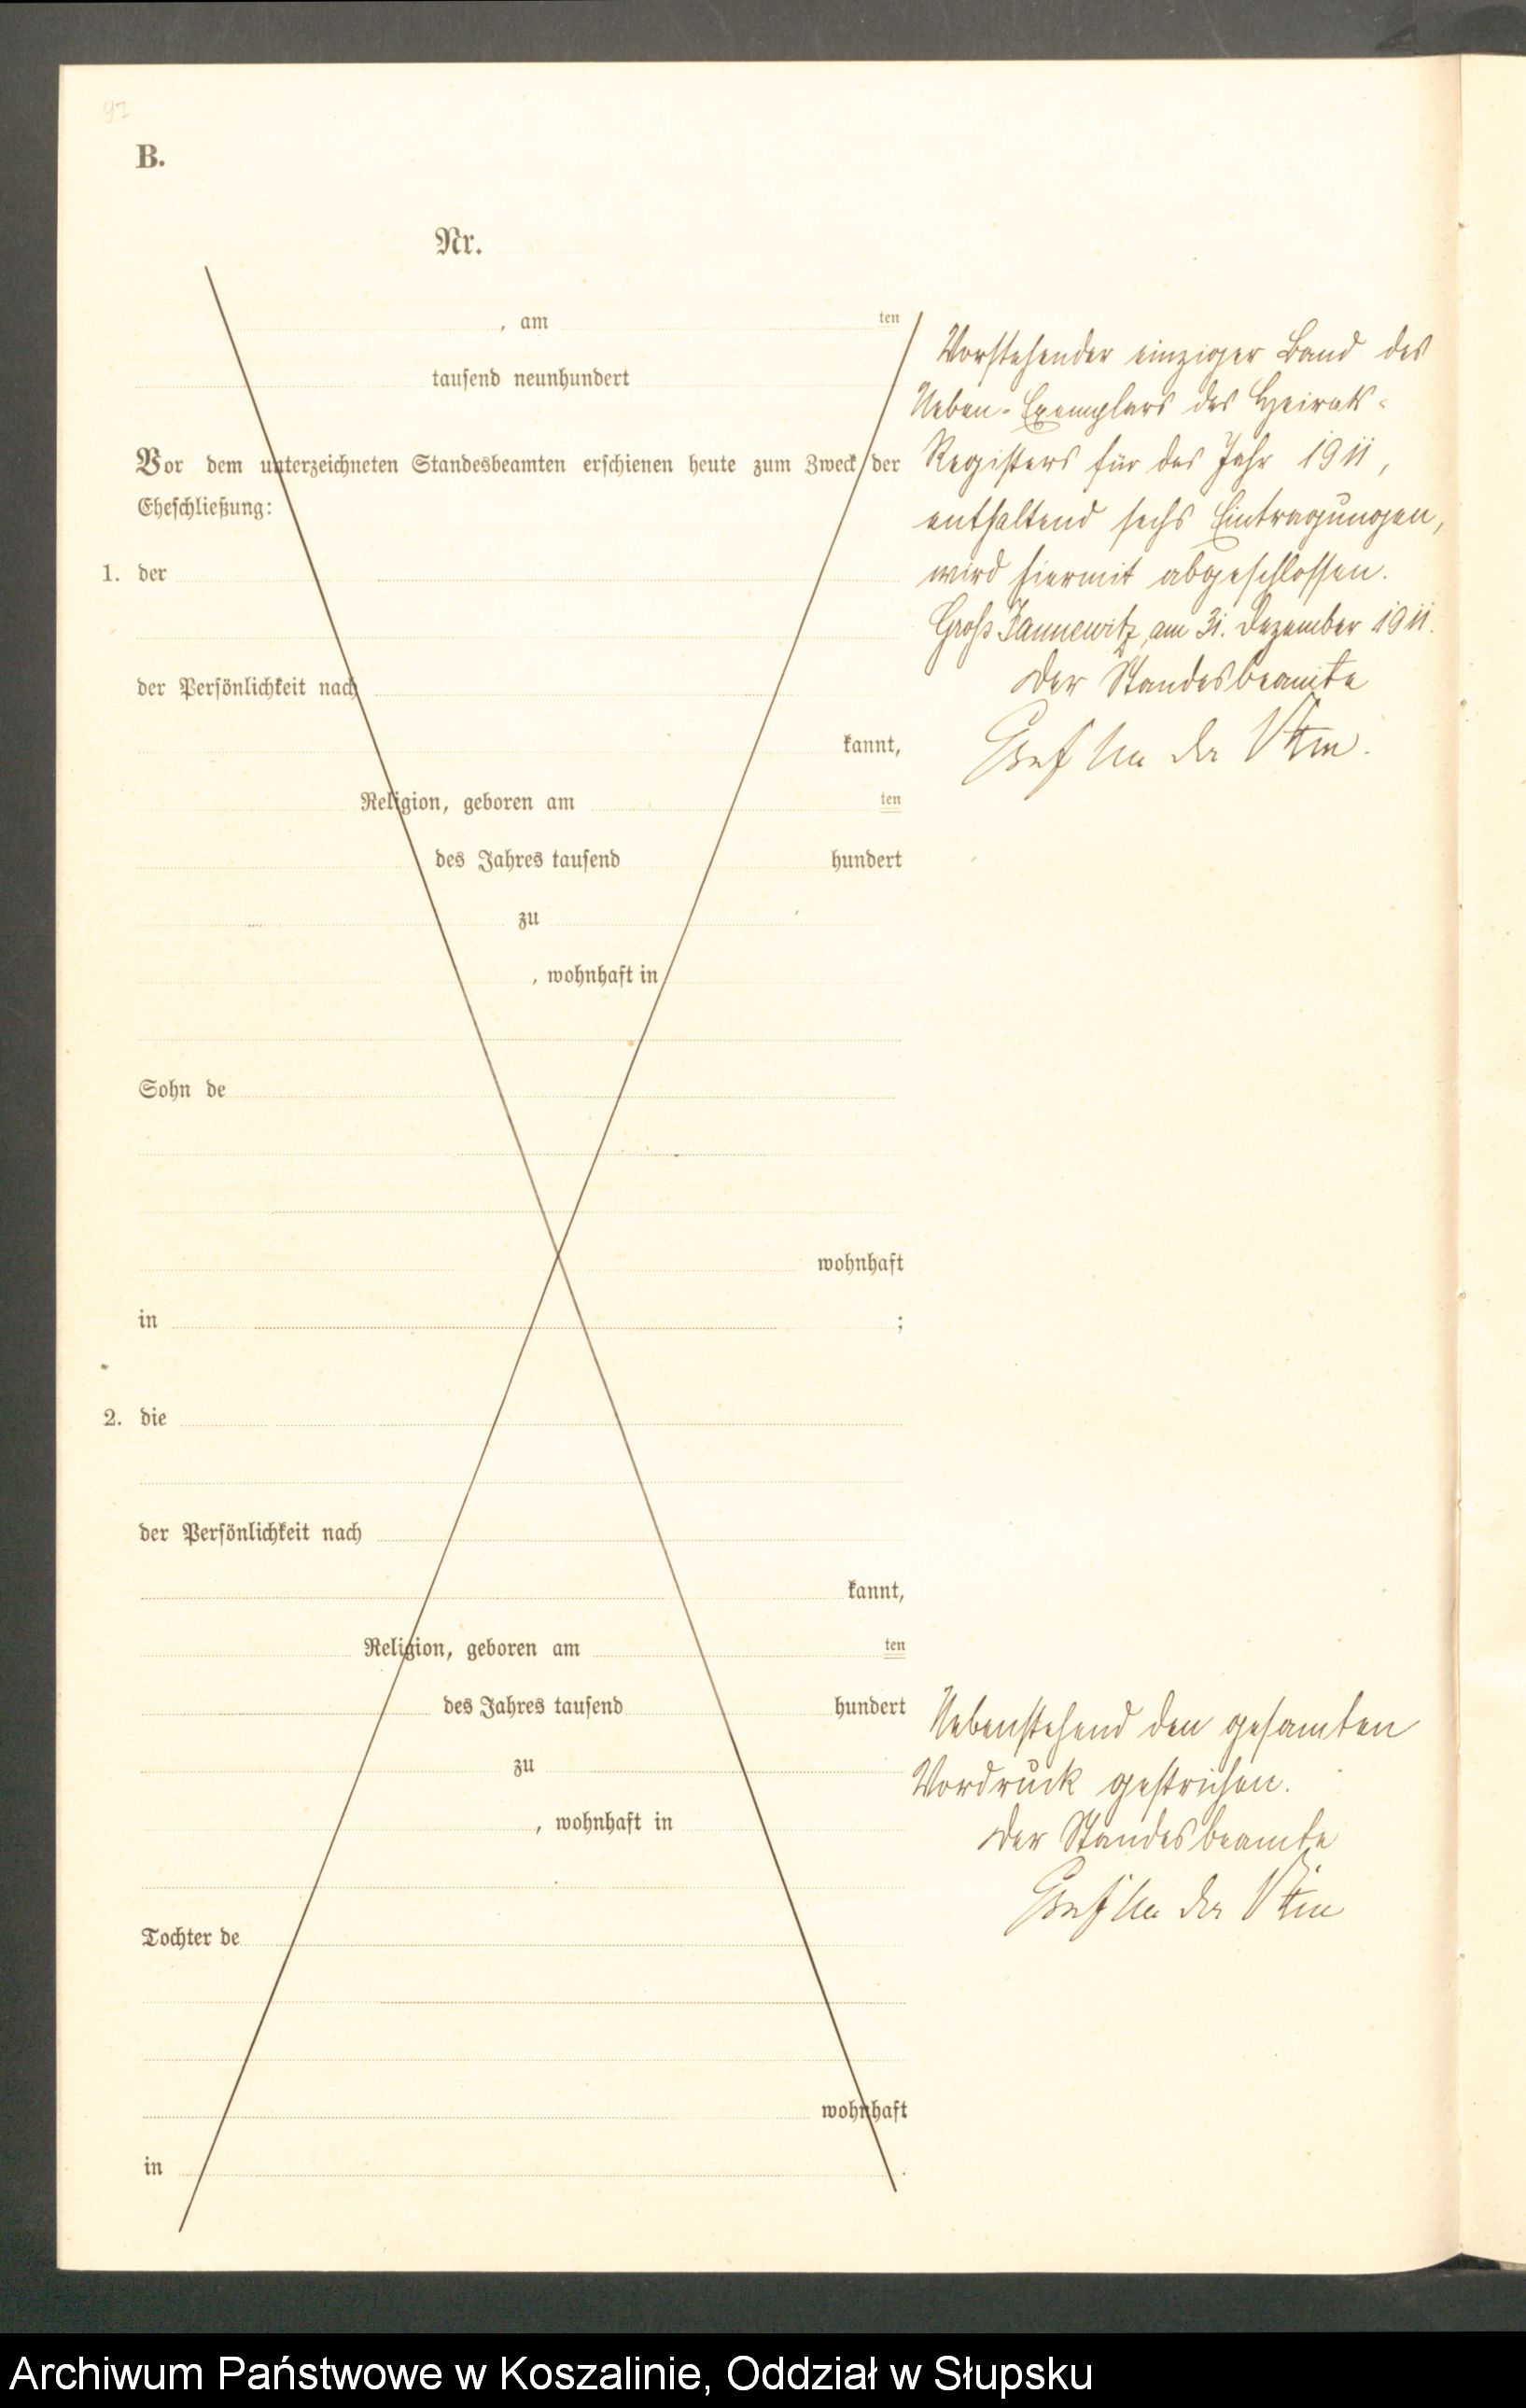 97
B.
Nr.
, am ten
tausend neunhundert
Vor dem unterzeichneten Standesbeamten erschienen heute zum Zweck der
Eheschließung:
1. der
der Persönlichkeit nach
kannt,
Religion, geboren am ten
des Jahres tausend hundert
zu
, wohnhaft in
Sohn de
wohnhaft
in ;
2. die
der Persönlichkeit nach
kannt,
Religion, geboren am ten
des Jahres tausend hundert
zu
, wohnhaft in
Tochter de
wohnhaft
in .
Vorstehender einziger Band des
Neben-Exemplars des Heirats-
Registers für das Jahr 1911,
enthaltend sechs Eintragungen,
wird hiermit abgeschlossen.
Groß Jannewitz, am 31. Dezember 1911.
Der Standesbeamte
Graf der
Nebenstehend den gesamten
Vordruck gestrichen.
Der Standesbeamte
Graf der
Archiwum Państwowe w Koszalinie, Oddział w Słupsku